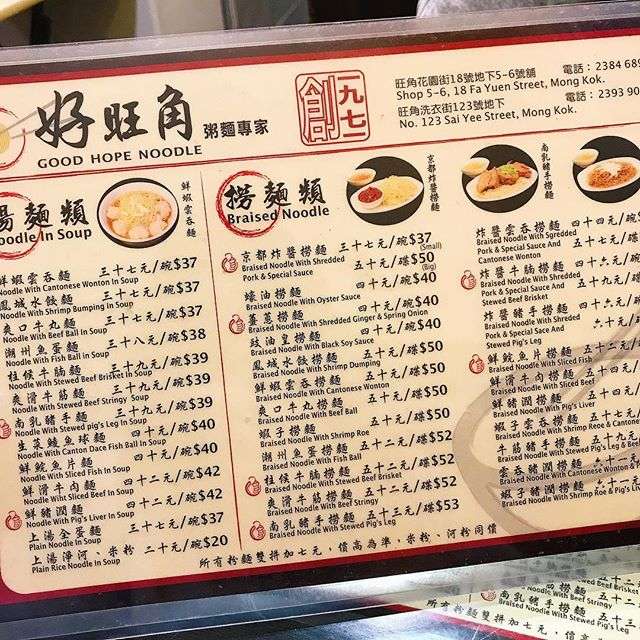 好旺角 粥麵專家
GOOD HOPE NOODLE
創 一九七一
旺角花園街18號地下5-6號舖 電話: 2384 689
Shop 5-6, 18 Fa Yuen Street, Mong Kok.
旺角洗衣街123號地下 電話: 2393 90
No. 123 Sai Yee Street, Mong Kok.
湯麵類
Noodle In Soup
鮮蝦雲吞麵
鮮蝦雲吞麵 三十七元/碗$37
Noodle With Cantonese Wonton In Soup
鳳城水餃麵 三十七元/碗$37
Noodle With Shrimp Bumping In Soup
爽口牛丸麵 三十七元/碗$37
Noodle With Beef Ball In Soup
潮州魚蛋麵 三十八元/碗$38
Noodle With Fish Ball In Soup
桂候牛腩麵 三十九元/碗$39
Noodle With Stewed Beef Brisket In Soup
爽滑牛筋麵 三十九元/碗$39
Noodle With Stewed Beef Stringy Soup
南乳豬手麵 三十九元/碗$39
Noodle With Stewed pig's Leg In Soup
生菜鯪魚球麵 四十元/碗$40
Noodle With Canton Dace Fish Ball In Soup
鮮鯇魚片麵 四十元/碗$40
Noodle With Sliced Fish In Soup
鮮滑牛肉麵 四十二元/碗$42
Noodle With Sliced Beef In Soup
鮮豬潤麵 四十二元/碗$42
Noodle With Pig's Liver In Soup
上湯全蛋麵 三十七元/碗$37
Plain Noodle In Soup
上湯淨河、米粉 二十元/碗$20
Plain Rice Noodle In Soup
撈麵類
Braised Noodle
京都炸醬撈麵
南乳豬手撈麵
京都炸醬撈麵 三十七元/碗$37 (Small)
Braised Noodle With Shredded
Pork & Special Sauce 五十元/碟$50 (Big)
蠔油撈麵 四十元/碗$40
Braised Noodle With Oyster Sauce
薑蔥撈麵 四十元/碗$40
Braised Noodle With Shredded Ginger & Spring Onion
豉油皇撈麵 四十元/碗$40
Braised Noodle With Black Soy Sauce
鳳城水餃撈麵 五十元/碟$50
Braised Noodle With Shrimp Dumping
鮮蝦雲吞撈麵 五十元/碟$50
Braised Noodle With Cantonese Wonton
爽口牛丸撈麵 五十元/碟$50
Braised Noodle With Beef Ball
蝦子撈麵 五十元/碟$50
Braised Noodle With Shrimp Roe
潮州魚蛋撈麵 五十二元/碟$52
Braised Noodle With Fish Ball
桂候牛腩撈麵 五十二元/碟$52
Braised Noodle With Stewed Beef Brisket
爽滑牛筋撈麵 五十二元/碟$52
Braised Noodle With Stewed Beef Stringy
南乳豬手撈麵 五十三元/碟$53
Braised Noodle With Stewed Pig's Leg
炸醬雲吞撈麵 四十四元/
Braised Noodle With Sgredded
Pork & Special Sauce And
Cantonese Wonton
炸醬牛腩撈麵 四十六元/
Braised Noodle With Shredded
Pork & Special Sauce And
Stewed Beef Brisket
炸醬豬手撈麵 四十六元/
Braised Noodle With Shredded
Pork & Special Sace And
Stewed Pig's Leg
鮮鯇魚片撈麵
Braised Noodle With Sliced Fish
鮮滑牛肉撈麵
Braised Noodle With Sliced Beef
鮮豬潤撈麵
Braised Noodle With Pig's Liver
蝦子雲吞撈麵
Braised Noodle With Shrimp Reoe & Cantones
牛筋豬手撈麵
Braised Noodle With Stewed
雲吞豬潤撈麵
Braised Noodle With Cantonese Wonton &
蝦子豬潤撈麵
Braised Noodle With Shrimp Roe & Pig's Liv
所有粉麵雙拼加七元,價高為準,米粉、河粉同價
Stewed Beef Brisket
Braised Noodle With Beef Stringy
南乳豬手撈麵 五十三
Braised Noodle With Stewed Pig's Leg
所有粉麵雙拼加七元,價高為準,米粉、河